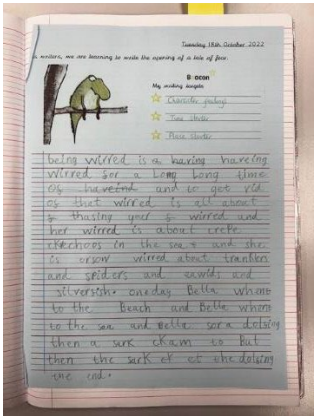 Tuesday 18th October 2022
writers, we are learning to write the opening of a tale of fear.
Beacon
My writing targets
Character feelings
Time starter
Place starter
being wirred is a having hareing
wirred for a Long Long time
of haveind and to get rid
of that wirred is all about
thasing your wirred and
her wirred is about crepe
in the sea and she
is wirred about
and spiders and and
silversish. oneday Bella whent
to the Beach and Bella whent
to the sea and Bella sor a dolsing
then a sark ckam to But
then the sark et the dolsing
the end.